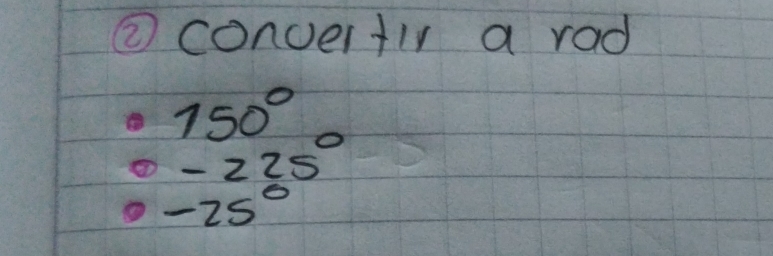 ② convertir a rad
• 150°
• -225°
• -25°